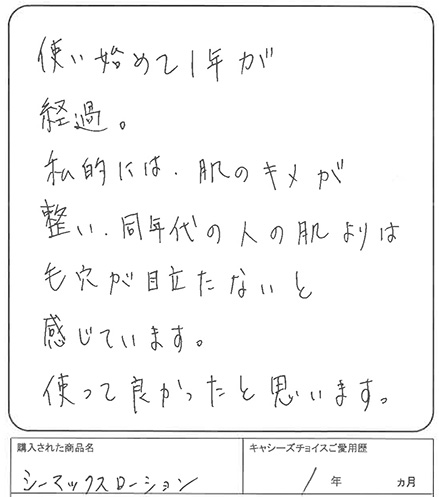 使い始めて1年が
経過。
私的には、肌のキメが
整い、同年代の人の肌よりは
毛穴が目立たないと
感じています。
使って良かったと思います。
購入された商品名
キャシーズチョイスご愛用歴
シーマックスローション
1年 ヵ月